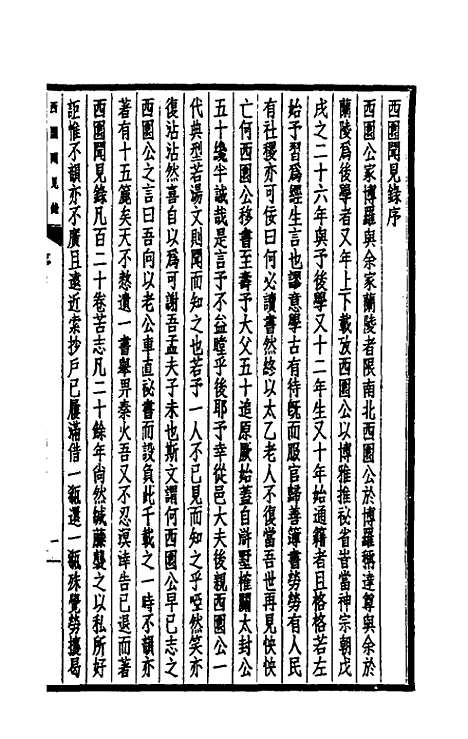 西園聞見錄序
西園公家博羅與余家蘭陵者限南北西園公於博羅稱達尊與余於
蘭陵爲後學者又年上下載攷西園公以博雅推祕省峕當神宗朝戊
戌之二十六年與予後學又十二年生又十年始通籍者且格格若左
始予習爲經生言也謬意學古有待旣而服官歸善簿書勞勞有人民
有社稷亦可佞曰何必讀書然終以太乙老人不復當吾世再見怏怏
亡何西園公移書至壽予大父五十追原厥始蓋自滸墅榷關太封公
五十纔半誠哉是言予不益瞠乎後耶予幸從邑大夫後親西園公一
代典型若湯文則聞而知之也若予一人不已見而知之乎啞然笑亦
復沾沾然喜自以爲可謝吾孟夫子未也斯文謂何西園公早已志之
西園公之言曰吾向以老公車直祕書而設負此千載之一時不韻亦
著有十五篦矣天不憗遺一書舉畀秦火吾又不忍溟涬告已退而著
西園聞見錄凡百二十卷苦志凡二十餘年尙然緘藤襲之以私所好
詎惟不韻亦不廣且遠近索抄戶已屨滿借一瓻還一瓻殊覺勞攘曷
西園聞見錄
序
一